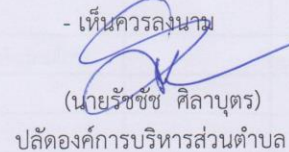 - เห็นควรลงนาม
(นายรัชชัช ศิลาบุตร)
ปลัดองค์การบริหารส่วนตำบล